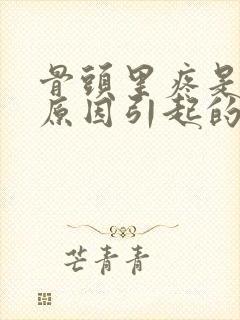 骨頭里疼是
原因引起的
芒青青